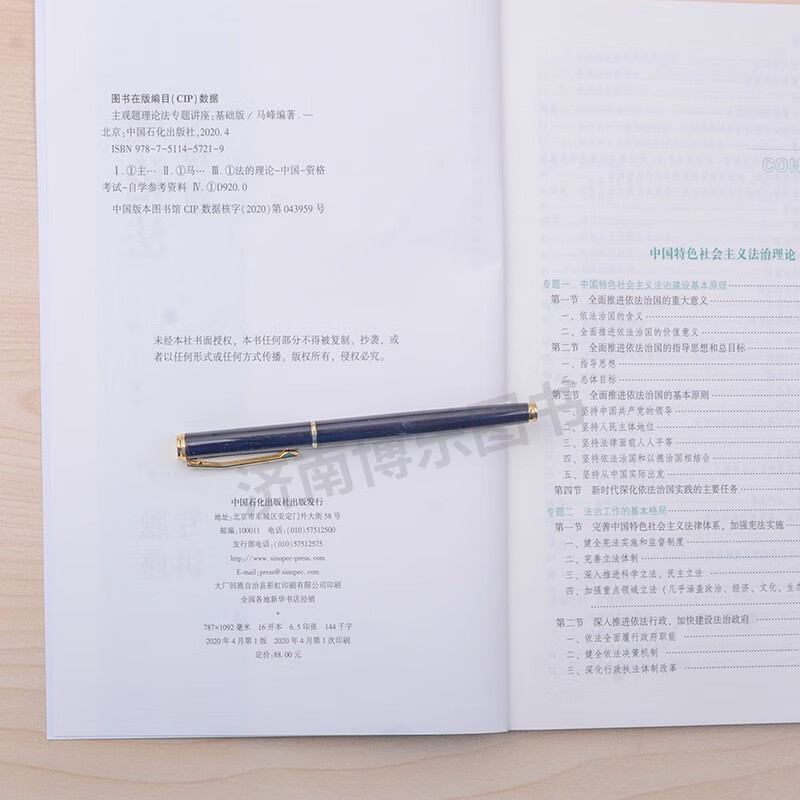 图书在版编目(CIP)数据
主观题理论法专题讲座:基础版/马峰编著.—
北京:中国石化出版社,2020.4
ISBN 978-7-5114-5721-9
Ⅰ.①主… Ⅱ.①马… Ⅲ.①法的理论-中国-资格
考试-自学参考资料 Ⅳ.①D920.0
中国版本图书馆 CIP 数据核字(2020)第 043959 号
未经本社书面授权,本书任何部分不得被复制、抄袭,或
者以任何形式或任何方式传播。版权所有,侵权必究。
中国石化出版社出版发行
地址:北京市东城区安定门外大街 58 号
邮编:100011 电话:(010)57512500
发行部电话:(010)57512575
http://www.sinopec-press.com
E-mail:press@sinopec.com
大厂回族自治县彩虹印刷有限公司印刷
全国各地新华书店经销
787×1092 毫米 16 开本 6.5 印张 144 千字
2020 年 4 月第 1 版 2020 年 4 月第 1 次印刷
定价:88.00 元
CON
中国特色社会主义法治理论
专题一 中国特色社会主义法治建设基本原理
第一节 全面推进依法治国的重大意义
一、依法治国的含义
二、全面推进依法治国的价值意义
第二节 全面推进依法治国的指导思想和总目标
一、指导思想
二、总体目标
第三节 全面推进依法治国的基本原则
一、坚持中国共产党的领导
二、坚持人民主体地位
三、坚持法律面前人人平等
四、坚持依法治国和以德治国相结合
五、坚持从中国实际出发
第四节 新时代深化依法治国实践的主要任务
专题二 法治工作的基本格局
第一节 完善中国特色社会主义法律体系,加强宪法实施
一、健全宪法实施和监督制度
二、完善立法体制
三、深入推进科学立法、民主立法
四、加强重点领域立法(几乎涵盖政治、经济、文化、生态
第二节 深入推进依法行政,加快建设法治政府
一、依法全面履行政府职能
二、健全依法决策机制
三、深化行政执法体制改革
济南博乐图书